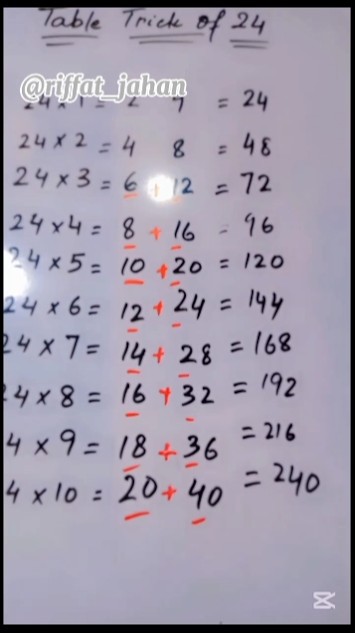 Table Trick of 24
@riffat_jahan
24 x 1 = 2 4 = 24
24 x 2 = 4 8 = 48
24 x 3 = 6 + 12 = 72
24 x 4 = 8 + 16 = 96
24 x 5 = 10 + 20 = 120
24 x 6 = 12 + 24 = 144
24 x 7 = 14 + 28 = 168
24 x 8 = 16 + 32 = 192
4 x 9 = 18 + 36 = 216
4 x 10 = 20 + 40 = 240